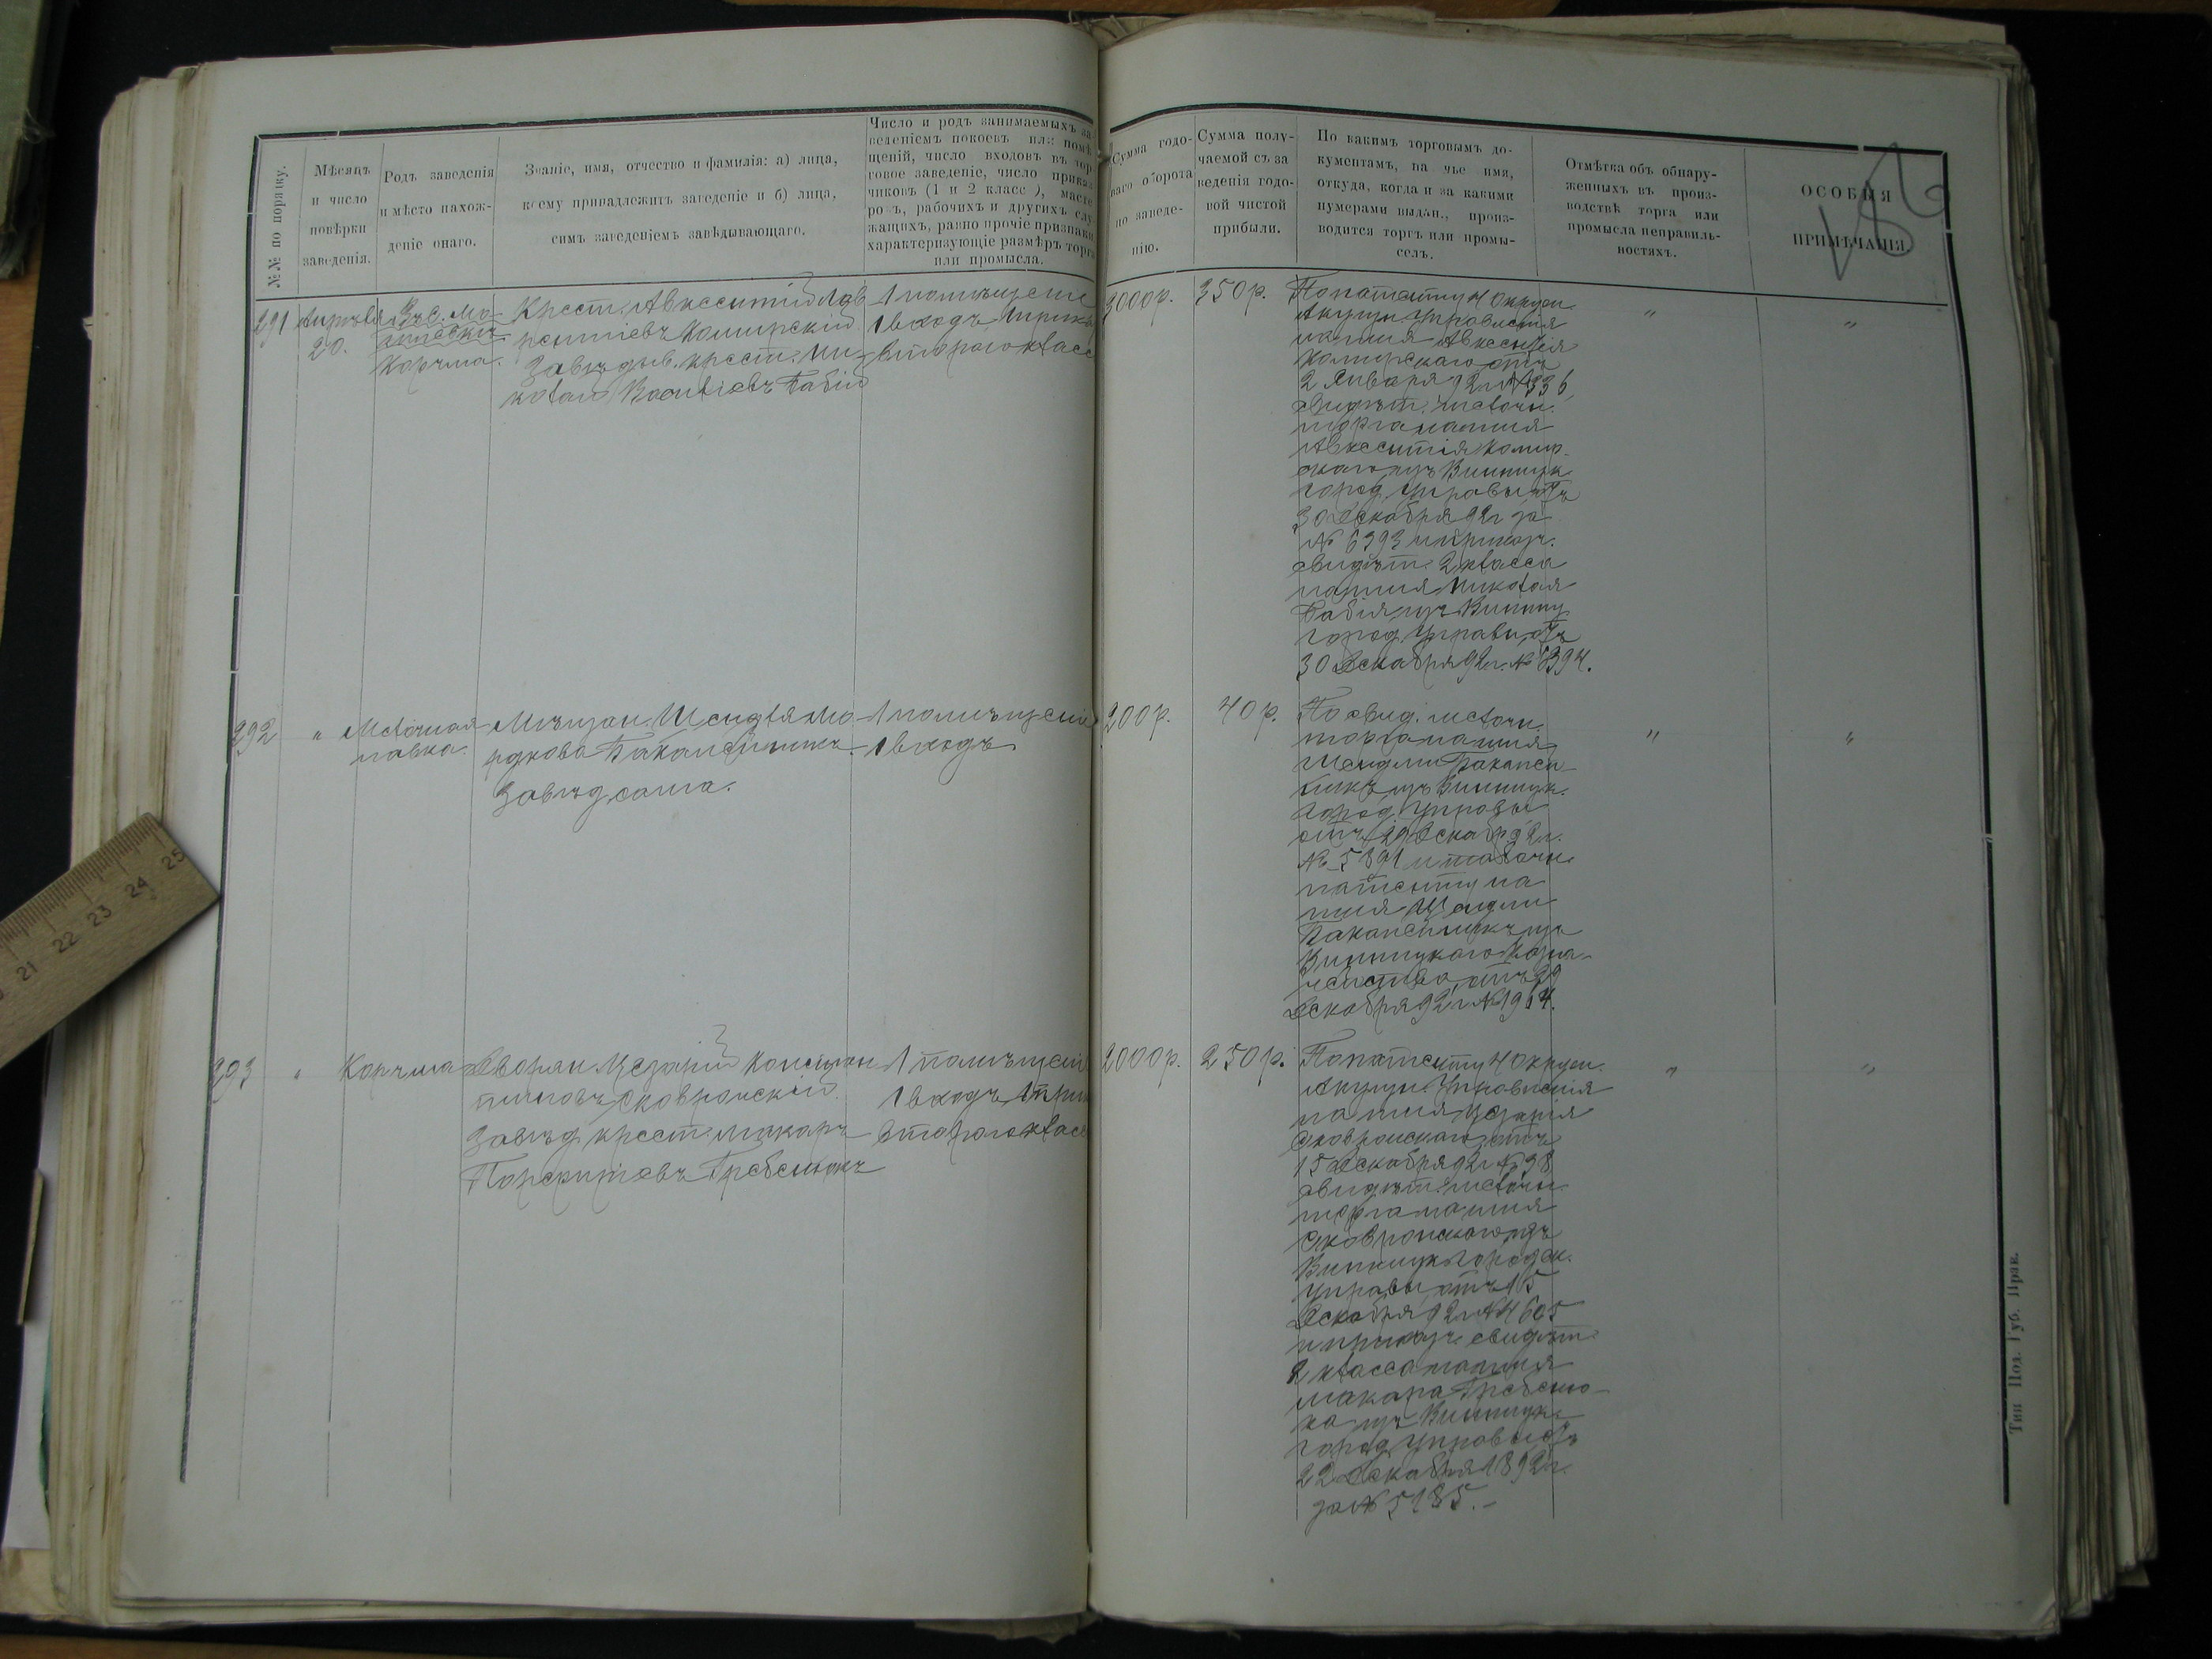 №№ по порядку.
Мѣсяцъ
и число
повѣрки
заведенія.
Родъ заведенія
и мѣсто нахож-
деніе онаго.
Званіе, имя, отчество и фамилія: а) лица,
коему принадлежитъ заведеніе и б) лица,
симъ заведеніемъ завѣдывающаго.
Число и родъ занимаемыхъ за-
веденіемъ покоевъ или помѣ-
щеній, число входовъ въ тор-
говое заведеніе, число прика-
чиковъ (1 и 2 класс ), масте
ро ъ, рабочихъ и другихъ слу
жащихъ, равно прочіе признаки
характеризующіе размѣръ торга
или промысла.
Сумма годо-
ваго оборота
по заведе-
нію.
Сумма полу-
чаемой съ за
веденія годо-
вой чистой
прибыли.
По какимъ торговымъ до-
кументамъ, на чье имя,
откуда, когда и за какими
нумерами выдан., произ-
водится торгъ или промы-
селъ.
Отмѣтка объ обнару-
женныхъ въ произ-
водствѣ торга или
промысла неправиль-
ностяхъ.
ОСОБЫЯ
ПРИМѢЧАНІЯ
291
Апрѣля
20.
Въ с.
Корчма.
Крест. Авксентій Лав
рентіевъ Комирскій
Завѣдыв. крест. Ни-
колай Василіевъ Бабій
1 помѣщеніе
1 входъ, 1 прика
втораго класс
3000 р.
350 р.
По патенту 4 Окружн
Акцизн Управленія
на имя Авксентія
Комирскаго отъ
2 Января 92 г № 336,
свидѣт. мелочн.
торга на имя
Авксентія Комир-
скаго изъ Винницк
город Управы отъ
30 Декабря 92 г за
№ 6393 и прикаэ.
свидѣт. 2 класса
на имя Николая
Бабія изъ Винниц
город Управы отъ
30 Декабря 92 г. № 6394.
"
"
292
"
Мелочная
лавка.
Мѣщан. Шендля Мо
рдкова
Завѣд. сама.
1 помѣщеніе
1 входъ
200 р.
40 р.
По свид. мелочн.
торга на имя
Шендли
изъ Винницк.
город Управы
отъ 29 Декабр 92 г.
№ 5891 и табачн.
патенту на
имя Шендли
из
Винницкаго Казна-
чейства отъ 29
Декабря 92 г № 1964.
"
"
293
"
Корчма
Дворян. Цезарій Констан
тиновъ Сковронскій.
Завѣд крест. Макаръ
Гребенюкъ
1 помѣщені
1 входъ, 1 при
втораго класс
2000 р.
250 р.
По патенту 4 Окружн.
Акцизн. Управленія
на имя Цезарія
Сковронскаго отъ
15 Декабря 92 г № 98
свидѣт. мелочн.
торга на имя
Сковронскаго изъ
Винницк городск.
Управы отъ 15
Декабря 92 г № 4605
и прикаэ свидѣт
2 класса на имя
Макара Гребеню-
ка изъ Винницк.
город Управы отъ
22 Декабря 1892 г.
за № 5185.-
"
"
Тип Под. Губ. Прав.
21 22 23 24 25